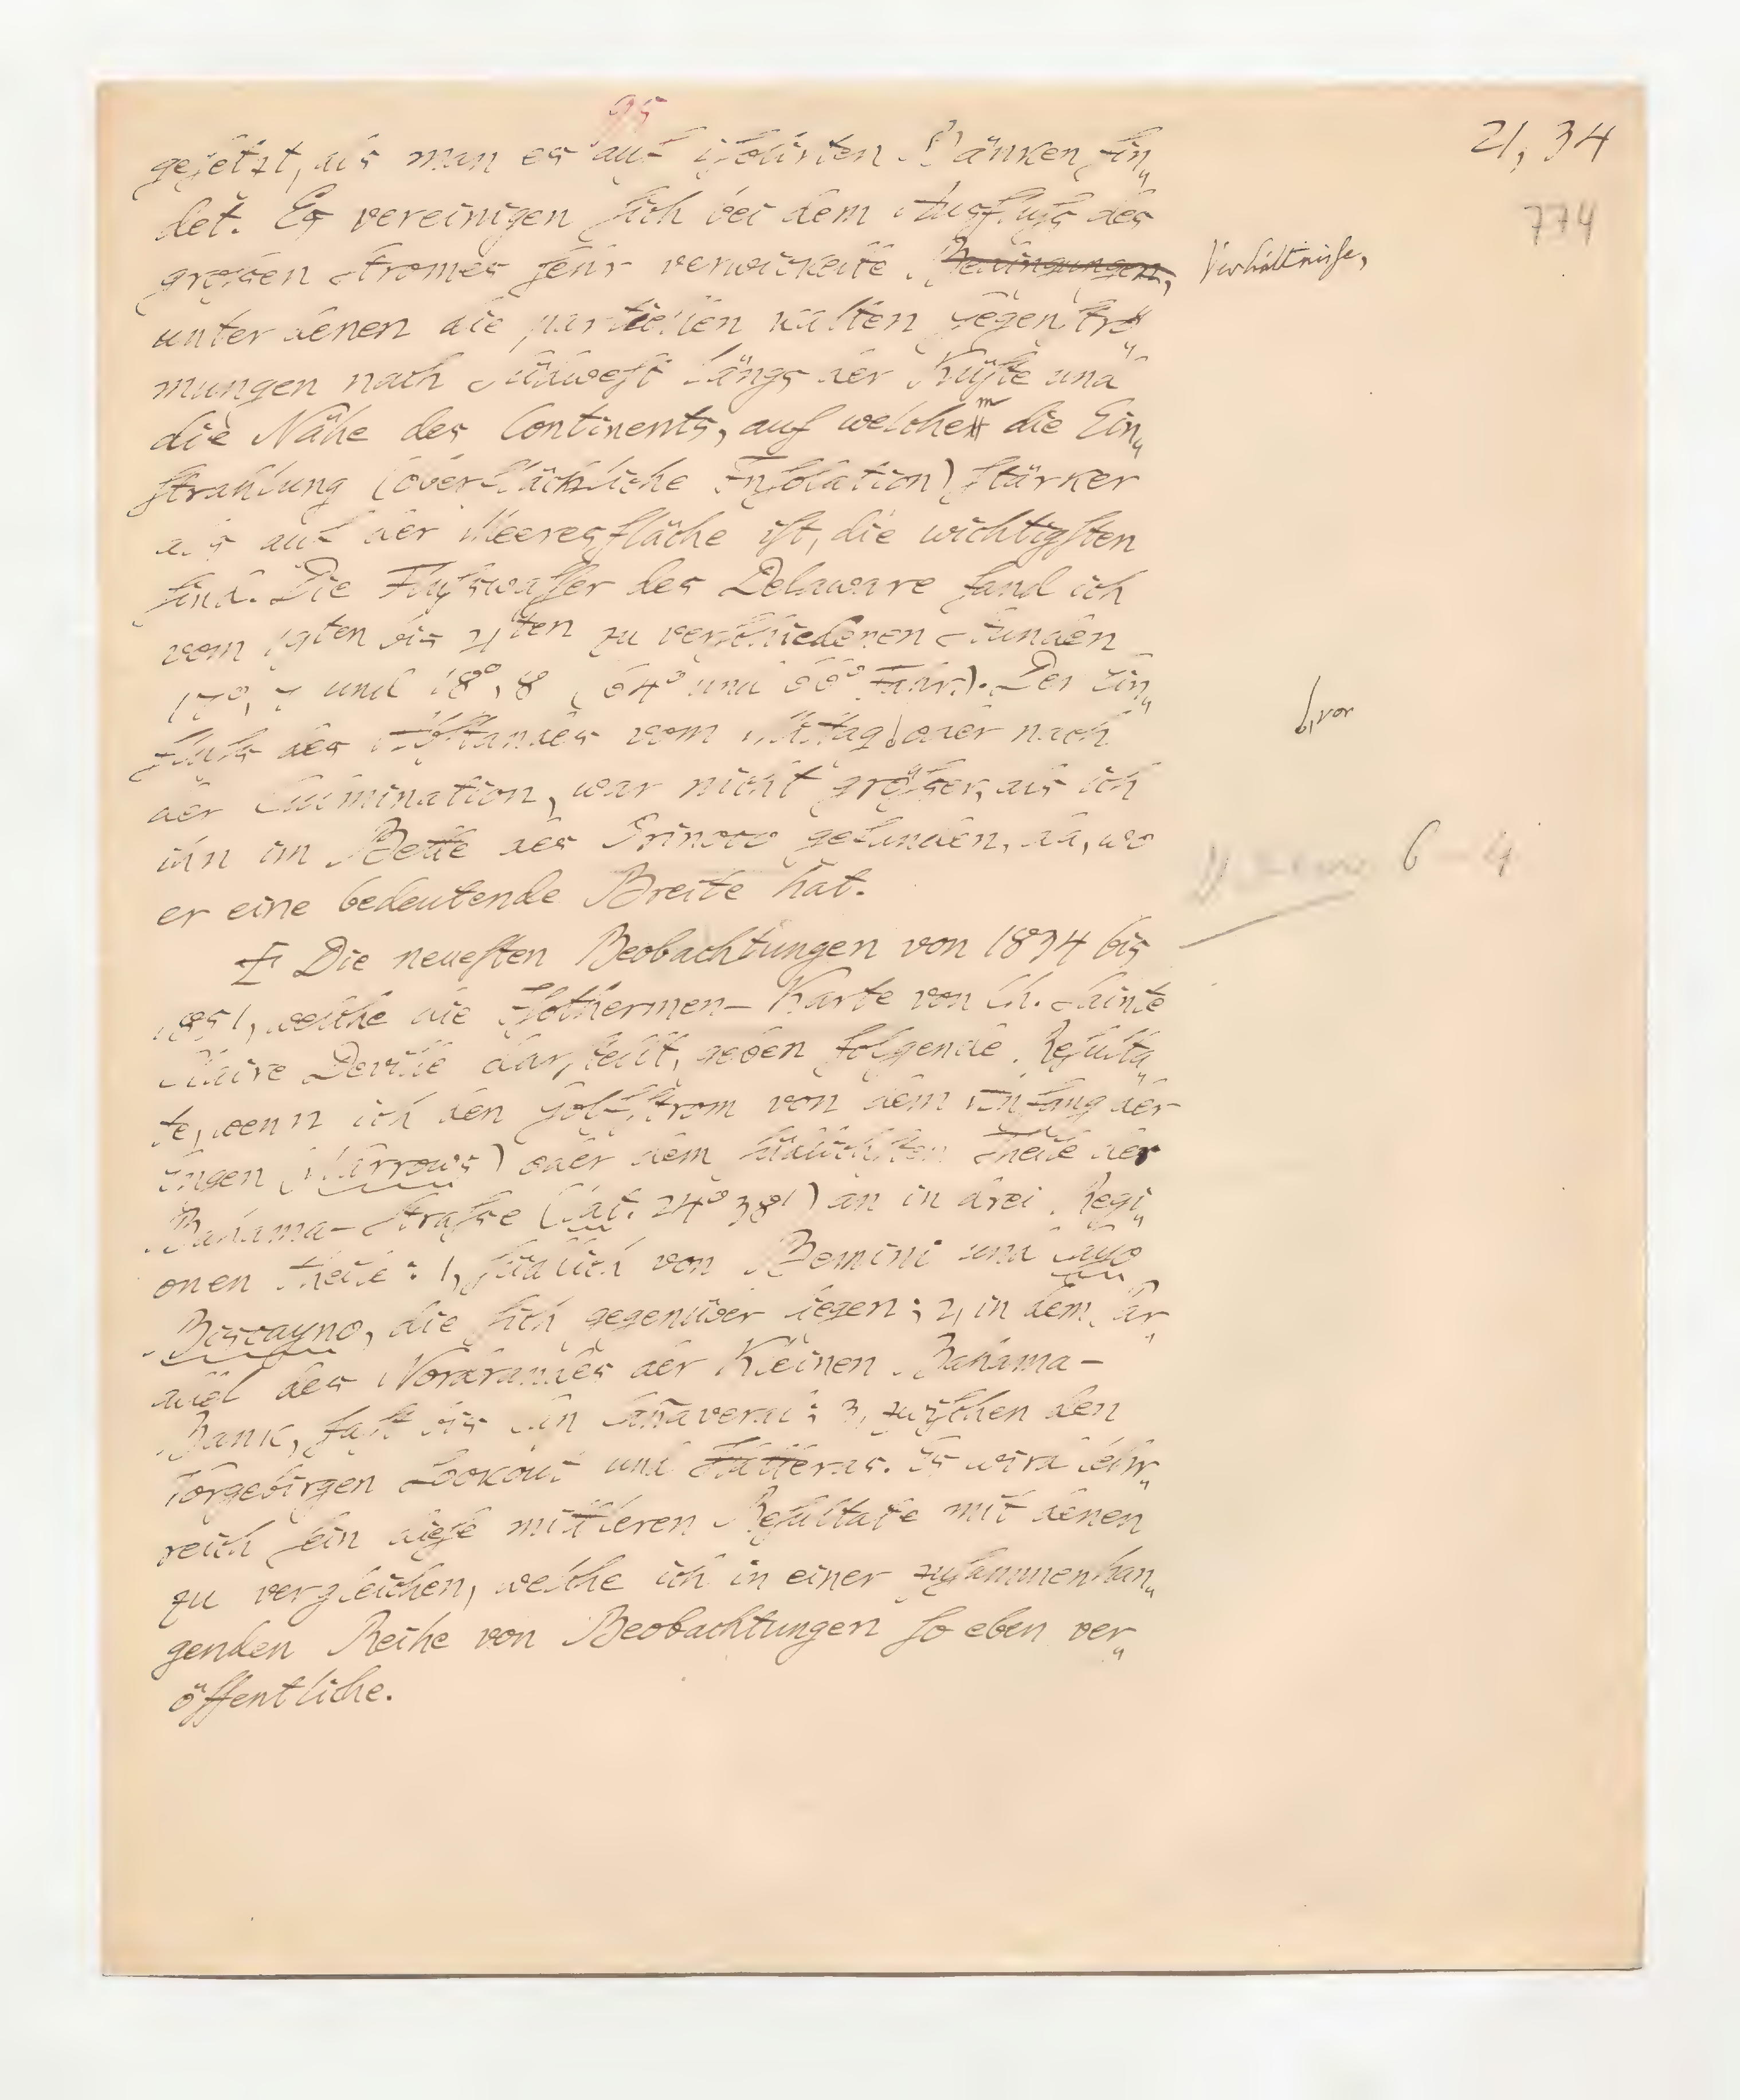 95
21, 34
774
gesetzt, als man es auf isolirten Bänken fin„
det. Es vereinigen sich bei dem Ausfluß des
großen Stromes sehr verwickelte Bedingungen, Verhältnisse,
unter denen die partiellen kalten Gegenströ„
mungen nach Südwest längs der Küste und
die Nähe des Continents, auf welchem die Ein„
strahlung (oberflächliche Insolation) stärker
als auf der Meeresfläche ist, die wichtigsten
sind. Die Flußwasser des Delaware fand ich
vom 19ten bis 21ten zu verschiedenen Stunden
17°, 7 und 18°, 8 (64° und 66° Fahr.). Der Ein„
fluß des Abstandes vom Mittag, vor oder nach
der Culmination, war nicht größer, als ich
ihn im Bette des Orinoco gefunden, da, wo
er eine bedeutende Breite hat.
6 – 4
Die neuesten Beobachtungen von 1834 bis
1851, welche die Isothermen- Karte von Ch. Sainte
Claire Deville darstellt, geben folgende Resulta„
te, wenn ich den Golfstrom von dem Anfang der
Engen (Narrows) oder dem südlichsten Theile der
Bahama- Straße (Lat. 24° 38') an in drei Regi„
onen theile: 1, südlich von Bemini und Cayo
Biscayno, die sich gegenüber liegen; 2, in dem Pa„
rallel des Nordrandes der Kleinen Bahama-
Bank, fast bis Cañaveral; 3, zwischen den
Vorgebirgen Lookout und Hatteras. Es wird lehr„
reich sein diese mittleren Resultate mit denen
zu vergleichen, welche ich in einer zusammenhan„
genden Reihe von Beobachtungen so eben ver„
öffentliche.